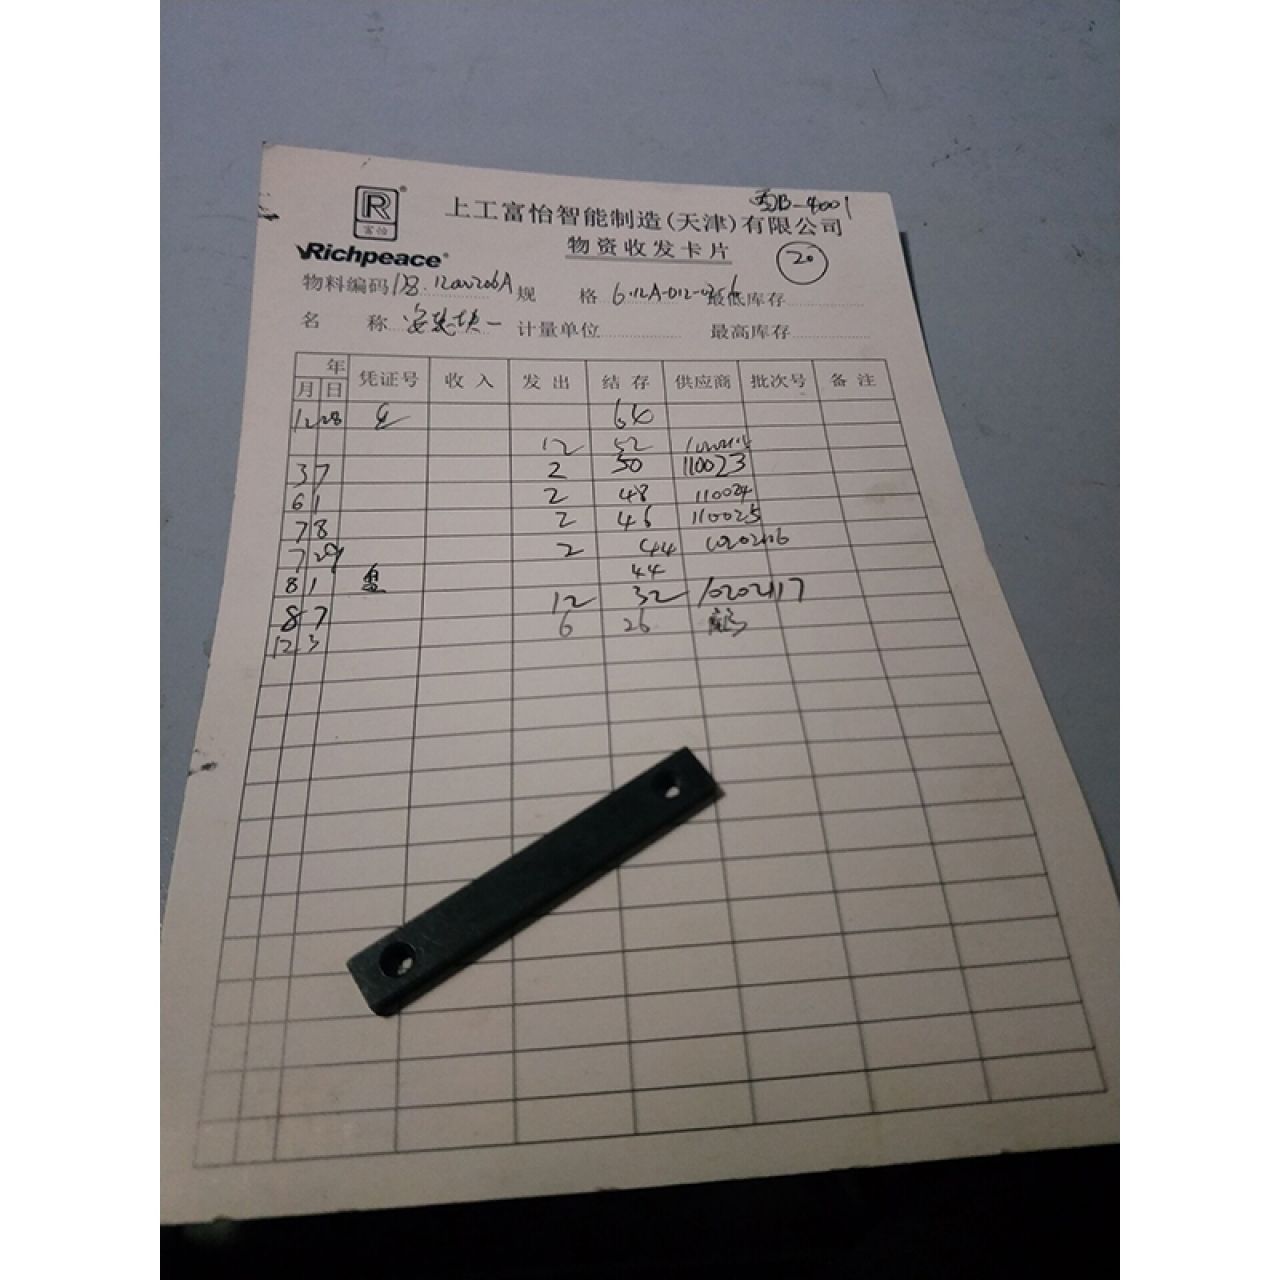 B-4001
R
富怡
上工富怡智能制造(天津)有限公司
Richpeace
物资收发卡片
20
物料编码 规 格 最低库存
名 称 安装块一 计量单位 最高库存
年
月 日 凭证号 收入 发出 结存 供应商 批次号 备注
12 28 64
12 52
3 7 2 50 110023
6 1 2 48 110024
7 8 2 46 110025
7 29 2 44
8 1 盘 44
8 7 12 32 10202117
12 3 6 26